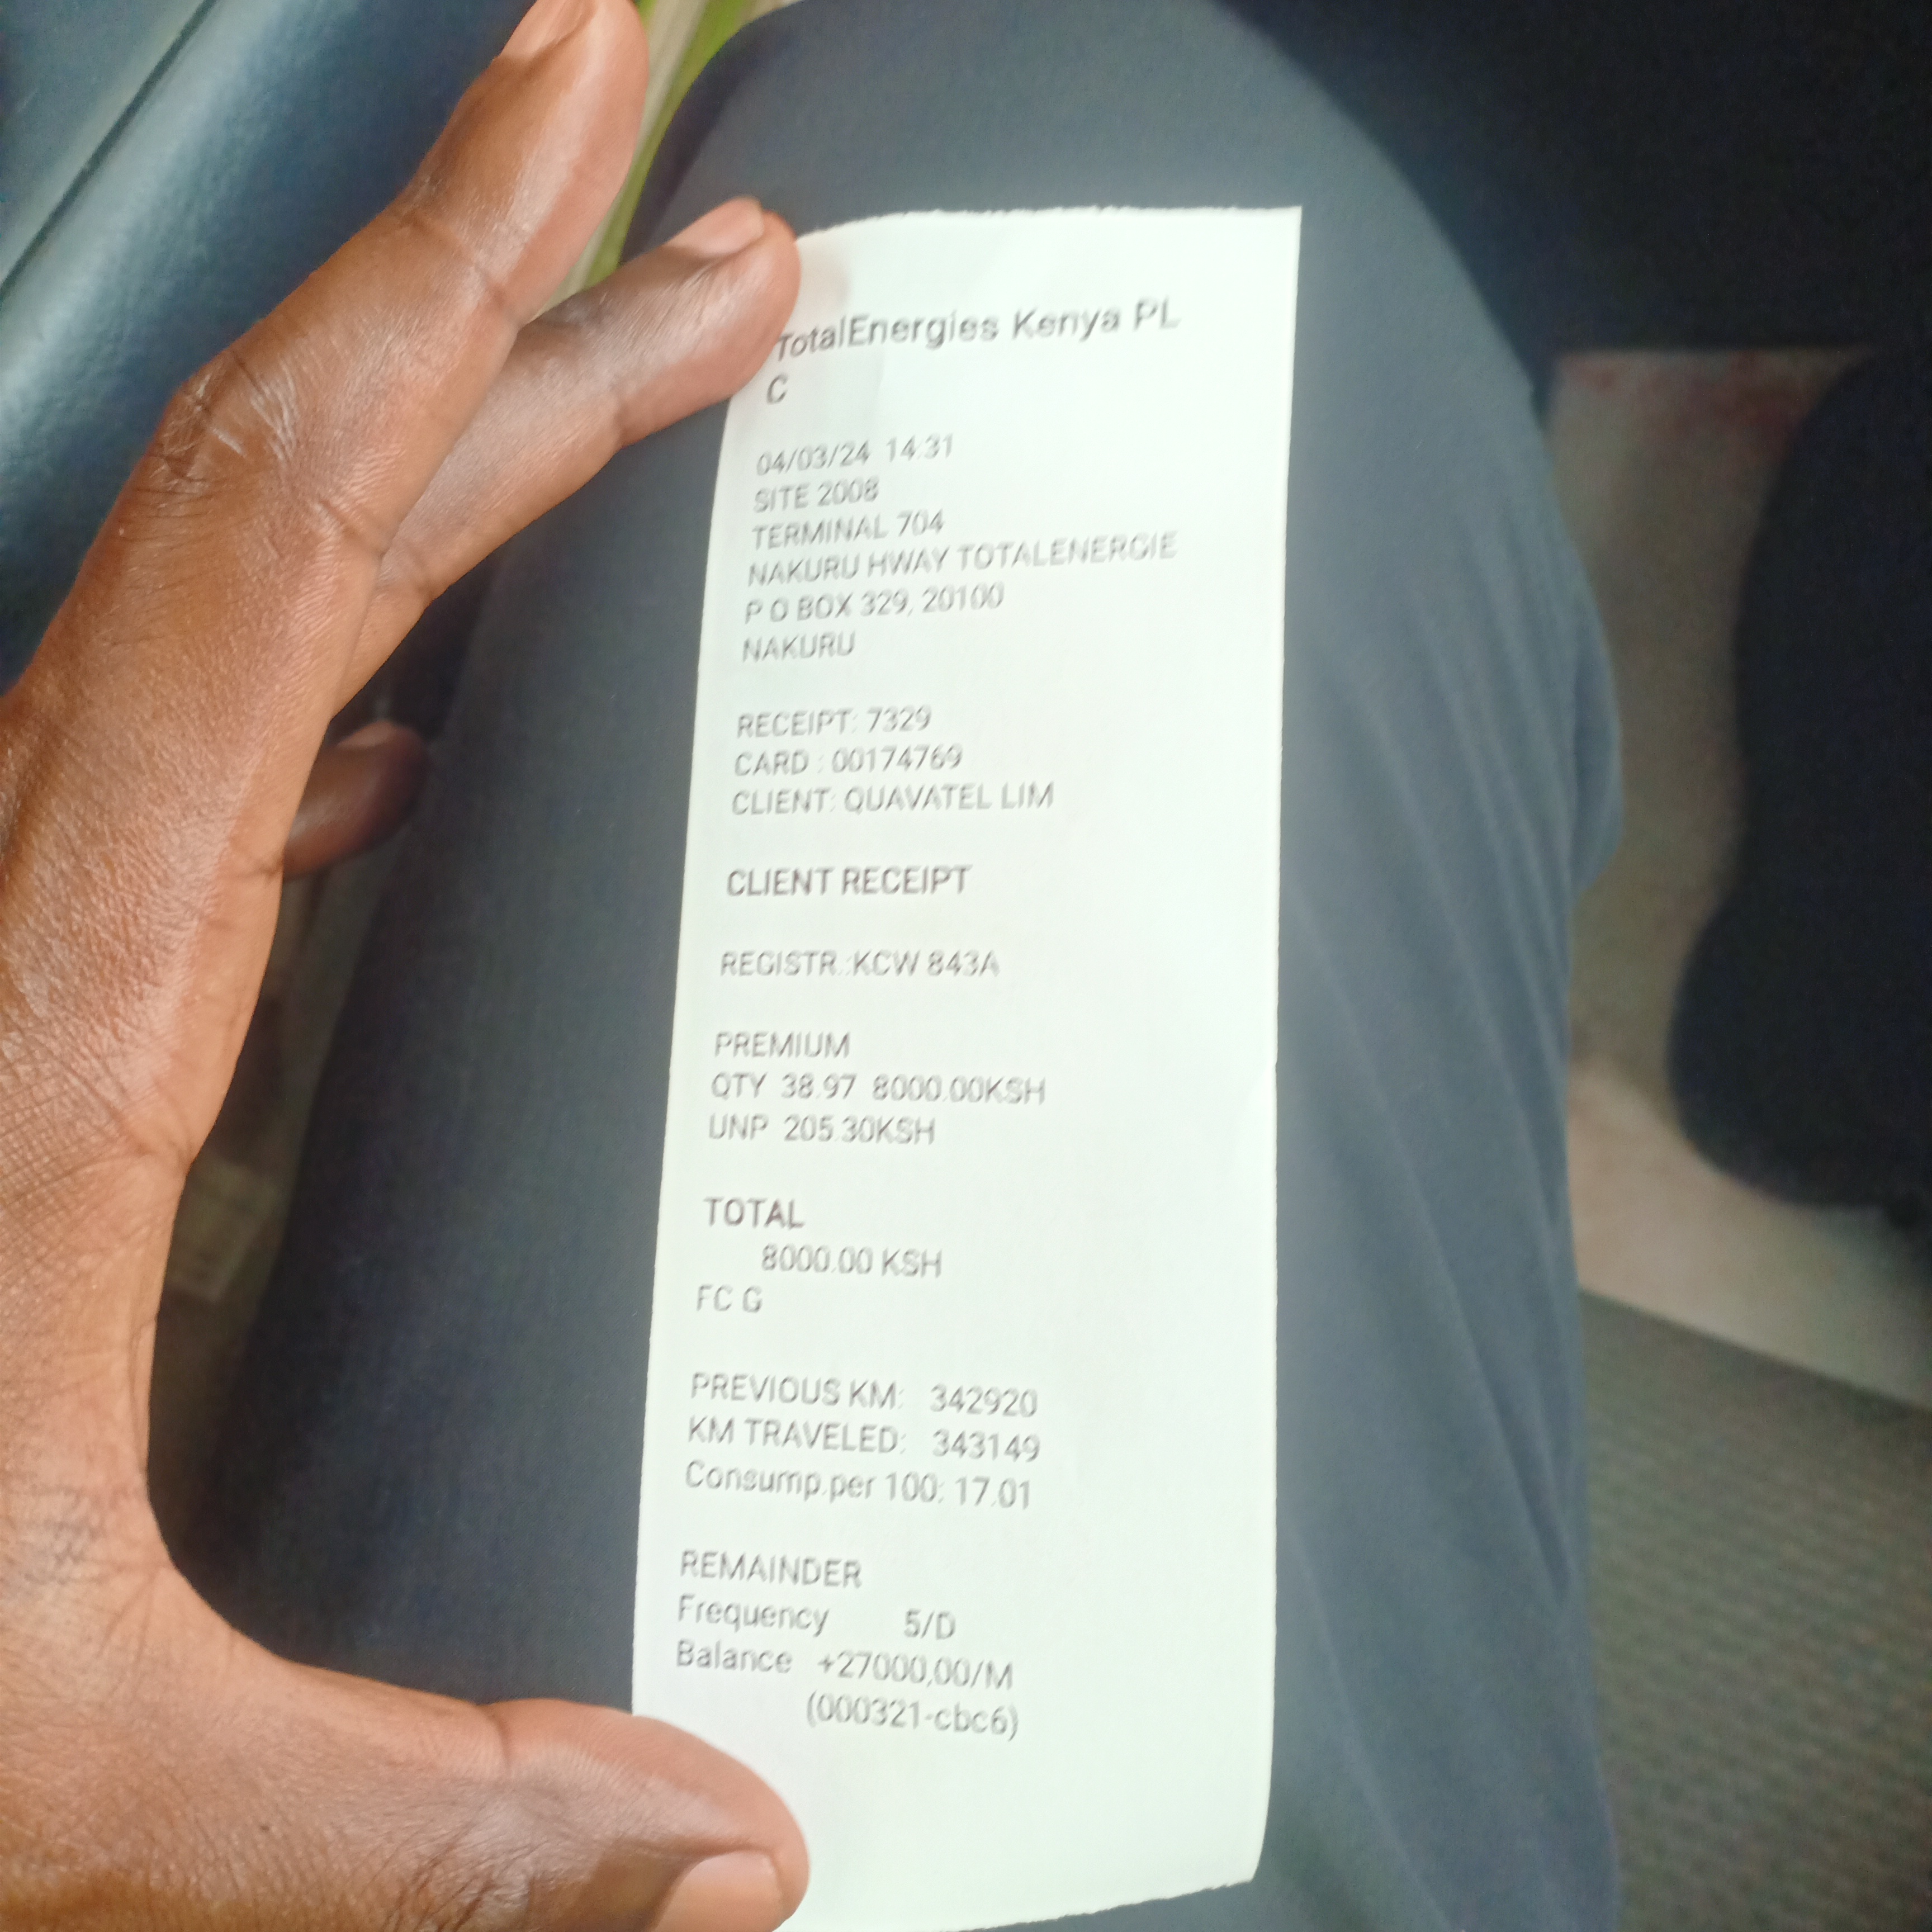 TotalEnergies Kenya PL
C
04/03/24 14:31
SITE 2008
TERMINAL 704
NAKURU HWAY TOTALENERGIE
P O BOX 329, 20100
NAKURU
RECEIPT: 7329
CARD : 00174769
CLIENT: QUAVATEL LIM
CLIENT RECEIPT
REGISTR.:KCW 843A
PREMIUM
QTY 38.97 8000.00KSH
UNP 205.30KSH
TOTAL
8000.00 KSH
FC G
PREVIOUS KM: 342920
KM TRAVELED: 343149
Consump.per 100: 17.01
REMAINDER
Frequency 5/D
Balance +27000,00/M
(000321-cbc6)